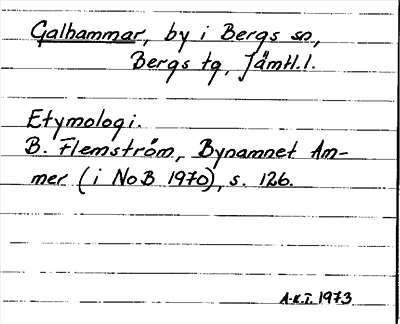 Galhammar, by i Bergs sn,
Bergs tg, Jämtl.l.
Etymologi.
B. Flemström, Bynamnet Am-
mer (i NoB 1970), s. 126.
A-K.T. 1973